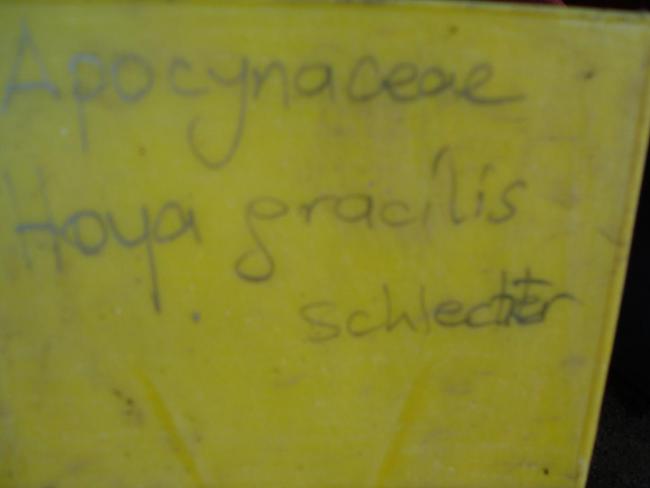 Apocynaceae
Hoya gracilis
schlechter